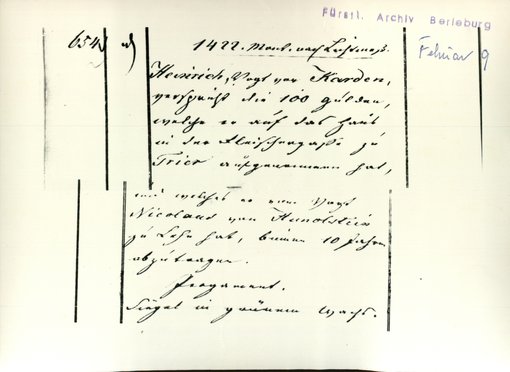 Fürstl. Archiv Berleburg
Februar 9
654 d) 1422. Mont. nach Lichtmeß.
Heinrich, Vogt von Karden,
verspricht die 100 gülden,
welche er auf das Haus
in der Fleischergaße zu
Trier aufgenommen hat,
und welches er vom Vogt
Nicolaus von Hunolstein
zu Lehn hat, binnen 10 Jahren
abzutragen.
Pergament.
Siegel in grünem Wachs.